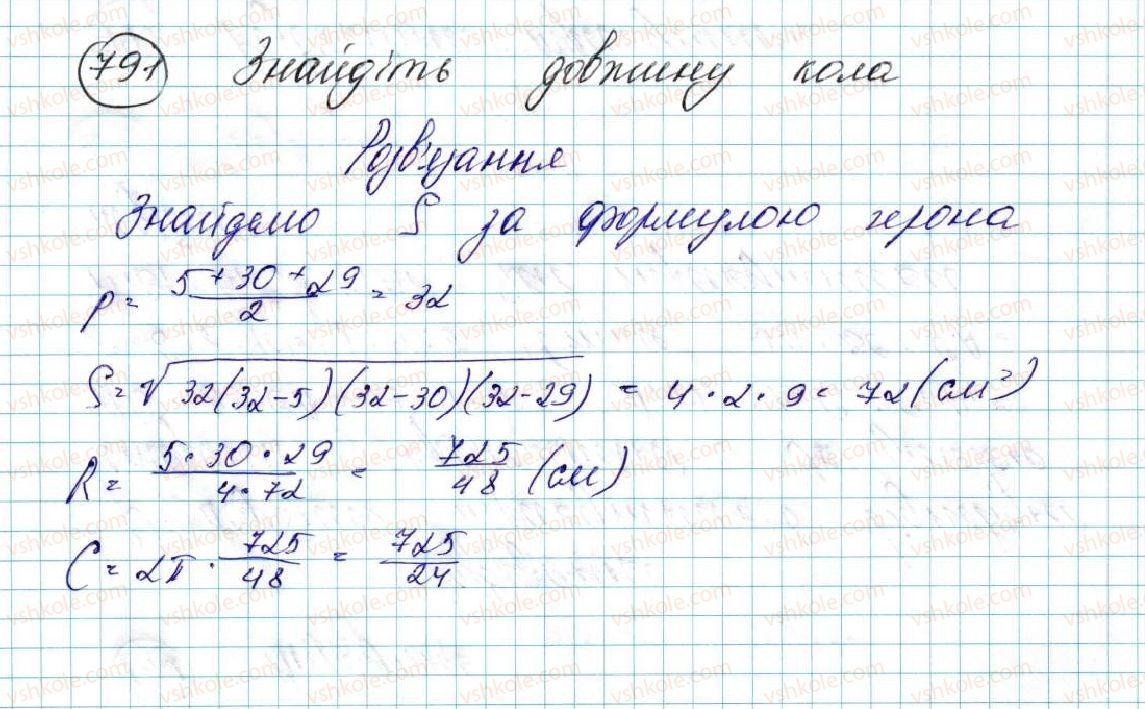 791 Знайдіть довжину кола
Розв'язання
Знайдемо S за формулою герона
p = (5+30+29)/2 = 32
S = √(32(32-5)(32-30)(32-29)) = 4·2·9 = 72 (см²)
R = (5·30·29)/(4·72) = 725/48 (см)
C = 2π · 725/48 = 725/24